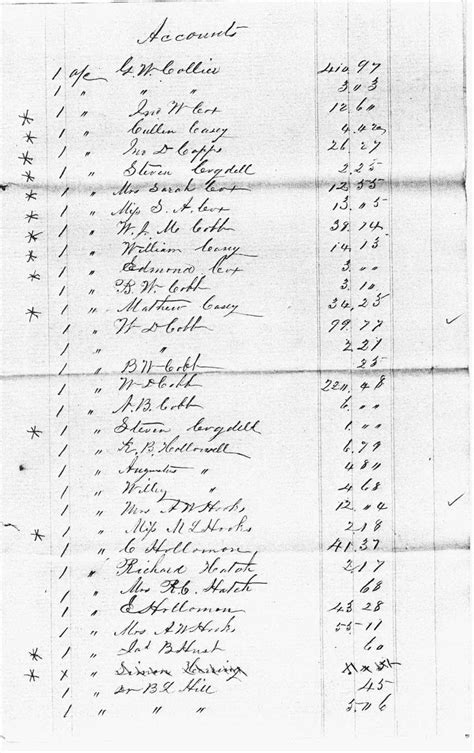 Accounts
1 a/c G. W. Collier 410.97
1 " " " 3.03
* 1 " Jno W. Cox 12.60
* 1 " Cullen Casey 4.42
* 1 " Jno D Capps 26.27
* 1 " Steven Cogdell 2.25
* 1 " Mrs Sarah Cox 12.55
* 1 " Miss S. A. Cox 13.05
* 1 " W. J. M. Cobb 38.74
* 1 " William Casey 14.13
* 1 " Edmond Cox 3.00
1 " B. W. Cobb 3.10
* 1 " Mathew Casey 34.25
1 " W D Cobb 99.77
1 " " 2.21
1 " B W Cobb 25
1 " W D Cobb 220.48
1 " N. B. Cobb 6.00
* 1 " Steven Cogdell 1.00
1 " R. B. Hollowell 6.79
1 " Augustus " 4.80
1 " Willey " 4.68
1 " Mrs A W Hooks 12.04
1 " Miss M L Hooks 2.18
* 1 " C Hollomon 41.37
1 " Richard Hatch 2.17
1 " Mrs R. C. Hatch 68
1 " E Hollomon 43.28
1 " Mrs A W Hooks 55.11
* 1 " Jas B Hust 60
* x "
1 " Dr B. F. Hill 45
1 " " " 5.06